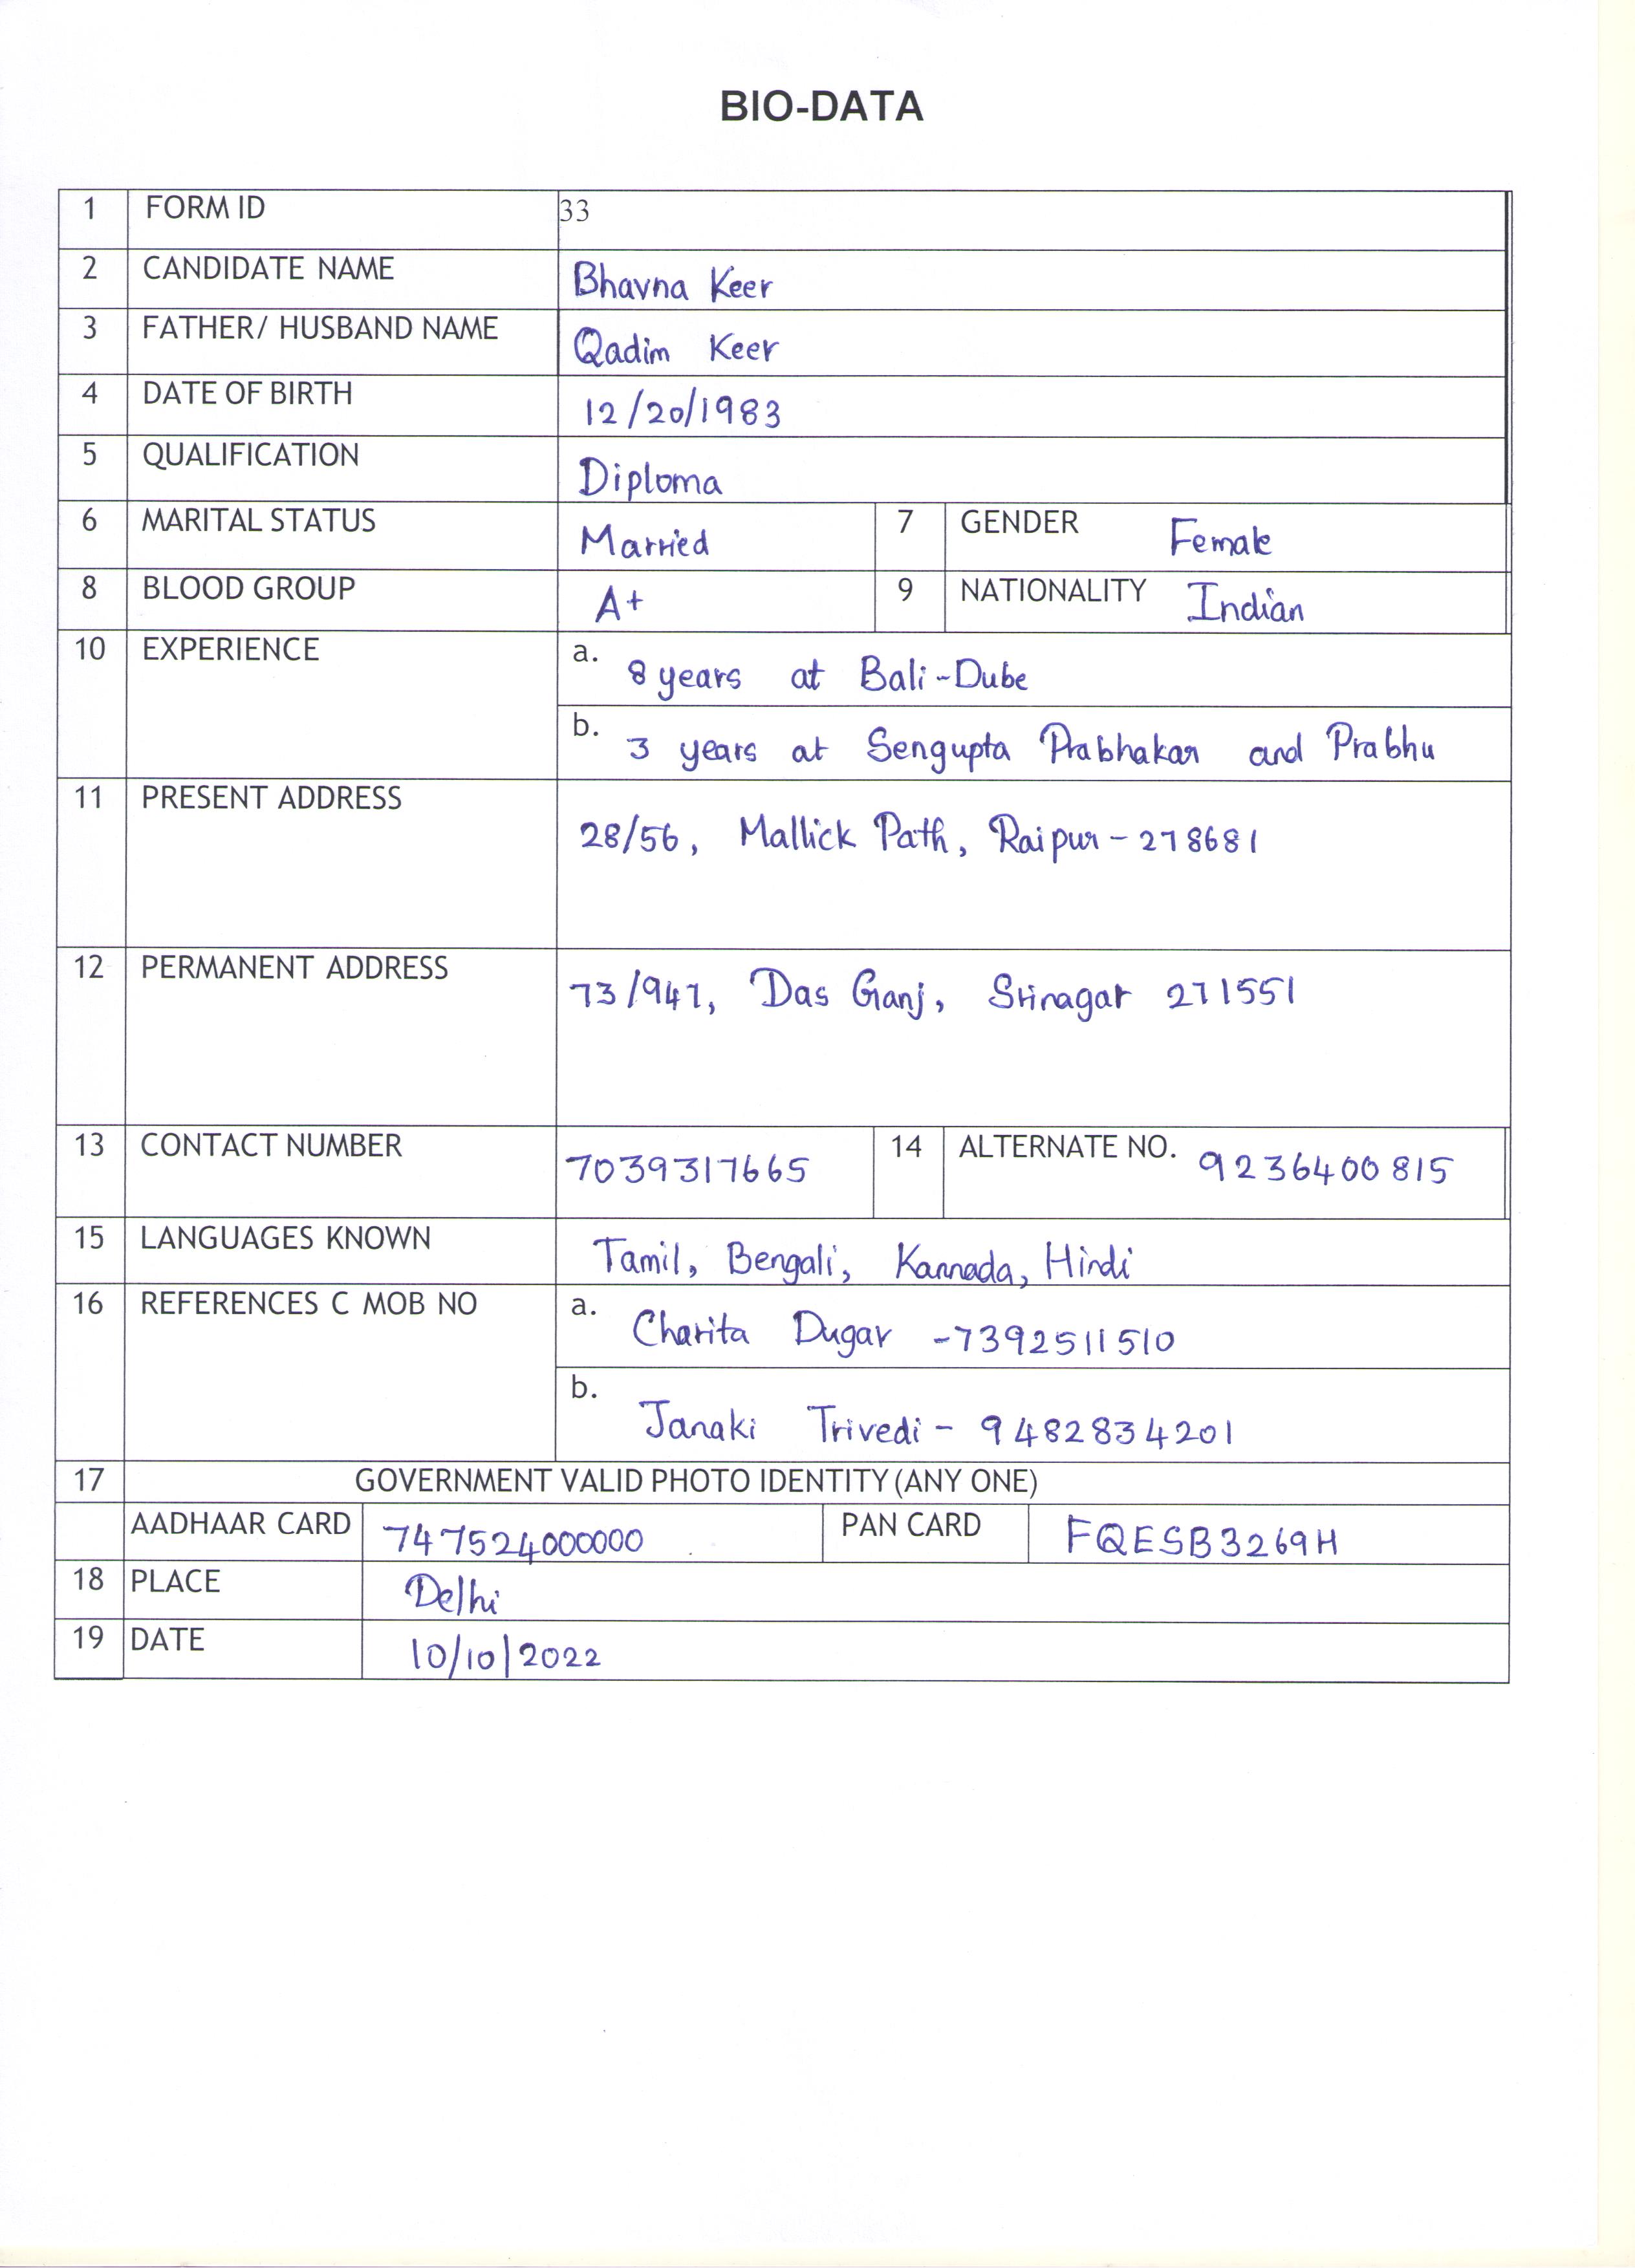 BIO-DATA
1 FORM ID 33
2 CANDIDATE NAME Bhavna Keer
3 FATHER/ HUSBAND NAME Qadim Keer
4 DATE OF BIRTH 12/20/1983
5 QUALIFICATION Diploma
6 MARITAL STATUS Married 7 GENDER Female
8 BLOOD GROUP A+ 9 NATIONALITY Indian
10 EXPERIENCE a. 8 years at Bali-Dube
b. 3 years at Sengupta Prabhakar and Prabhu
11 PRESENT ADDRESS 28/56, Mallick Path, Raipur - 278681
12 PERMANENT ADDRESS 73/947, Das Ganj, Srinagar 271551
13 CONTACT NUMBER 7039317665 14 ALTERNATE NO. 9236400815
15 LANGUAGES KNOWN Tamil, Bengali, Kannada, Hindi
16 REFERENCES C MOB NO a. Charita Dugar -7392511510
b. Janaki Trivedi - 9482834201
17 GOVERNMENT VALID PHOTO IDENTITY (ANY ONE)
AADHAAR CARD 747524000000 PAN CARD FQESB3269H
18 PLACE Delhi
19 DATE 10/10/2022